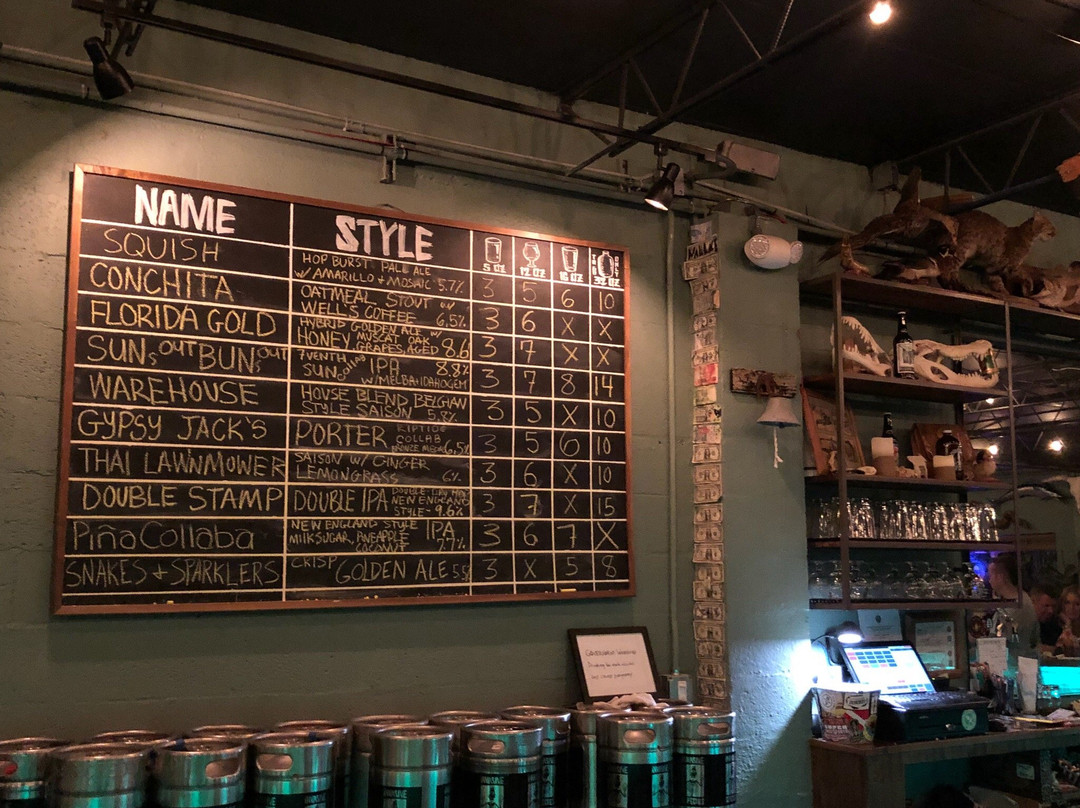 NAME STYLE 5 OZ 12 OZ 16 OZ 32 OZ
SQUISH
HOP BURST PALE ALE
W/ AMARILLO + MOSAIC 5.7% 3 5 6 10
CONCHITA
OATMEAL STOUT W/
WELL'S COFFEE 6.5% 3 6 X X
FLORIDA GOLD
HYBRID GOLDEN ALE W/
HONEY MUSCAT OAK
GRAPES, AGED 8.6 3 7 X X
SUNS OUT BUNS OUT
7VENTH
SUN IPA 8.8%
W/MELBA+IDAHOGEM 3 7 8 14
WAREHOUSE
HOUSE BLEND BELGIAN
STYLE SAISON 5.8% 3 5 X 10
GYPSY JACK'S
PORTER RIPTIDE
COLLAB
6.5% 3 5 6 10
THAI LAWNMOWER
SAISON W/ GINGER
LEMONGRASS 6% 3 6 X 10
DOUBLE STAMP
DOUBLE IPA
NEW ENGLAND
STYLE - 9.6% 3 7 X 15
Piña Collaba
NEW ENGLAND STYLE IPA
MILKSUGAR, PINEAPPLE
COCONUT 7.7% 3 6 7 X
SNAKES + SPARKLERS
CRISP GOLDEN ALE 5.5 3 X 5 8